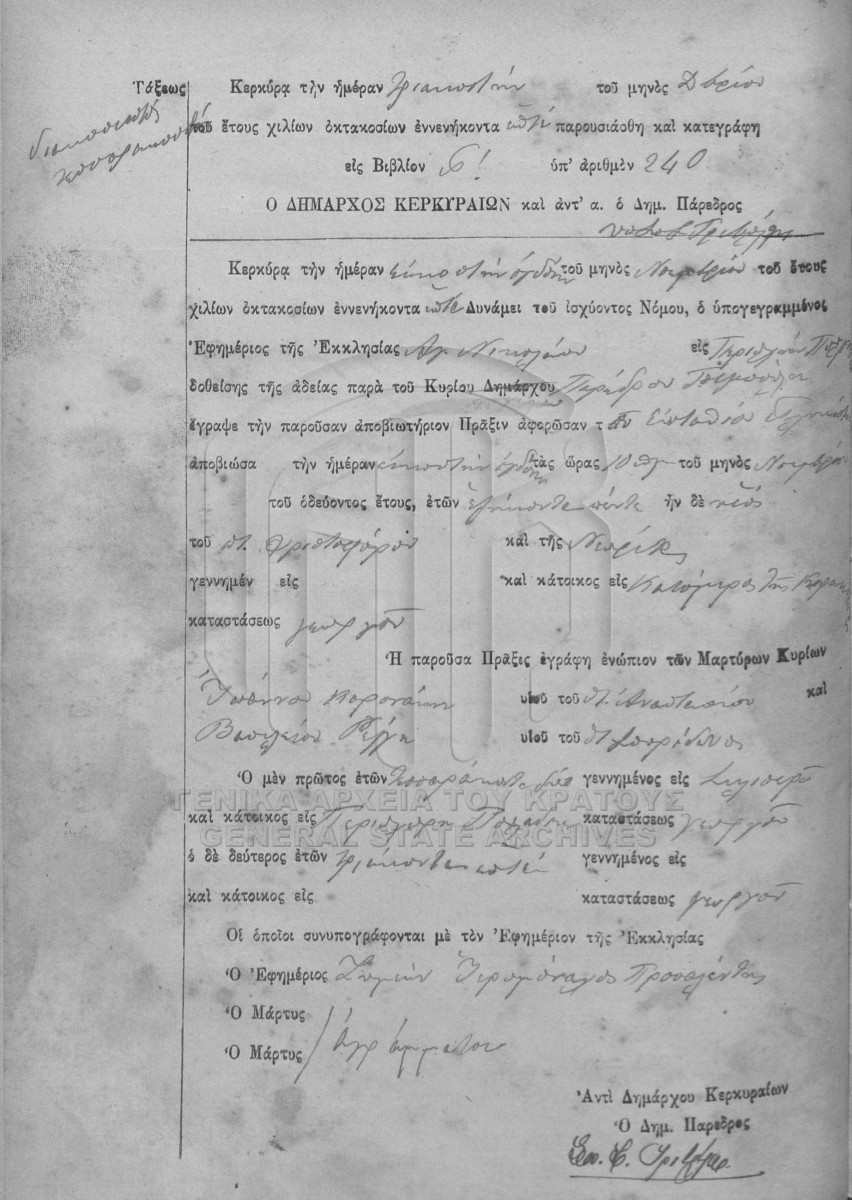 Τάξεως
διακοσιοστὸς
τεσσαρακοστός
Κερκύρα τὴν ἡμέραν τριακοστὴν τοῦ μηνὸς Δβρίου
τοῦ ἔτους χιλίων ὀκτακοσίων ἐννενήκοντα ἑπτὰ παρουσιάσθη καὶ κατεγράφη
εἰς Βιβλίον ὑπ' ἀριθμὸν 240
Ὁ ΔΗΜΑΡΧΟΣ ΚΕΡΚΥΡΑΙΩΝ καὶ ἀντ' α. ὁ Δημ. Πάρεδρος
Κερκύρα τὴν ἡμέραν εἰκοστὴν ὀγδόην τοῦ μηνὸς Νοεμβρίου τοῦ ἔτους
χιλίων ὀκτακοσίων ἐννενήκοντα ἑπτὰ Δυνάμει τοῦ ἰσχύοντος Νόμου, ὁ ὑπογεγραμμένος
Ἐφημέριος τῆς Ἐκκλησίας Ἁγ. Νικολάου εἰς
δοθείσης τῆς ἀδείας παρὰ τοῦ Κυρίου Δημάρχου Παρέδρου
ἔγραψε τὴν παροῦσαν ἀποβιωτήριον Πρᾶξιν ἀφορῶσαν τὸν Εὐστάθιον
ἀποβιώσα τὴν ἡμέραν εἰκοστὴν ὀγδόην τὰς ὥρας 10 πμ τοῦ μηνὸς Νοεμβρίου
τοῦ ὁδεύοντος ἔτους, ἐτῶν ἑξήκοντα πέντε ἦν δὲ υἱὸς
τοῦ π. Χριστοφόρου καὶ τῆς
γεννημέν εἰς καὶ κάτοικος εἰς
καταστάσεως γεωργοῦ
Ἡ παροῦσα Πρᾶξις ἐγράφη ἐνώπιον τῶν Μαρτύρων Κυρίων
Ἰωάννου Κορονάκη υἱοῦ τοῦ π. Ἀναστασίου καὶ
Βασιλείου Ρέγγη υἱοῦ τοῦ π. Σπυρίδωνος
Ὁ μὲν πρῶτος ἐτῶν τεσσαράκοντα δύο γεννημένος εἰς
καὶ κάτοικος εἰς καταστάσεως γεωργοῦ
ὁ δὲ δεύτερος ἐτῶν τριάκοντα ἑπτὰ γεννημένος εἰς
καὶ κάτοικος εἰς καταστάσεως γεωργοῦ
ΓΕΝΙΚΑ ΑΡΧΕΙΑ ΤΟΥ ΚΡΑΤΟΥΣ
GENERAL STATE ARCHIVES
Οἱ ὁποῖοι συνυπογράφονται μὲ τὸν Ἐφημέριον τῆς Ἐκκλησίας
Ὁ Ἐφημέριος Ἱερομόναχος Προσαλέντης
Ὁ Μάρτυς
Ὁ Μάρτυς ἀγράμματοι
Ἀντὶ Δημάρχου Κερκυραίων
Ὁ Δημ. Παρεδρος